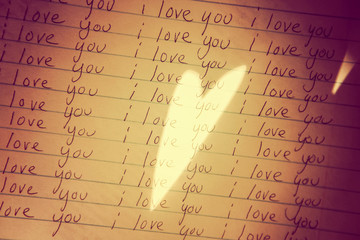 i love you i love you
i love you i love you i love you
i love you i love you i love you
i love you i love you i love you
i love you i love you i love you
i love you i love you i love you
i love you i love you i love you
i love you i love you i love you
i love you i love you i love you
i love you i love you i love you
i love you i love you i love you